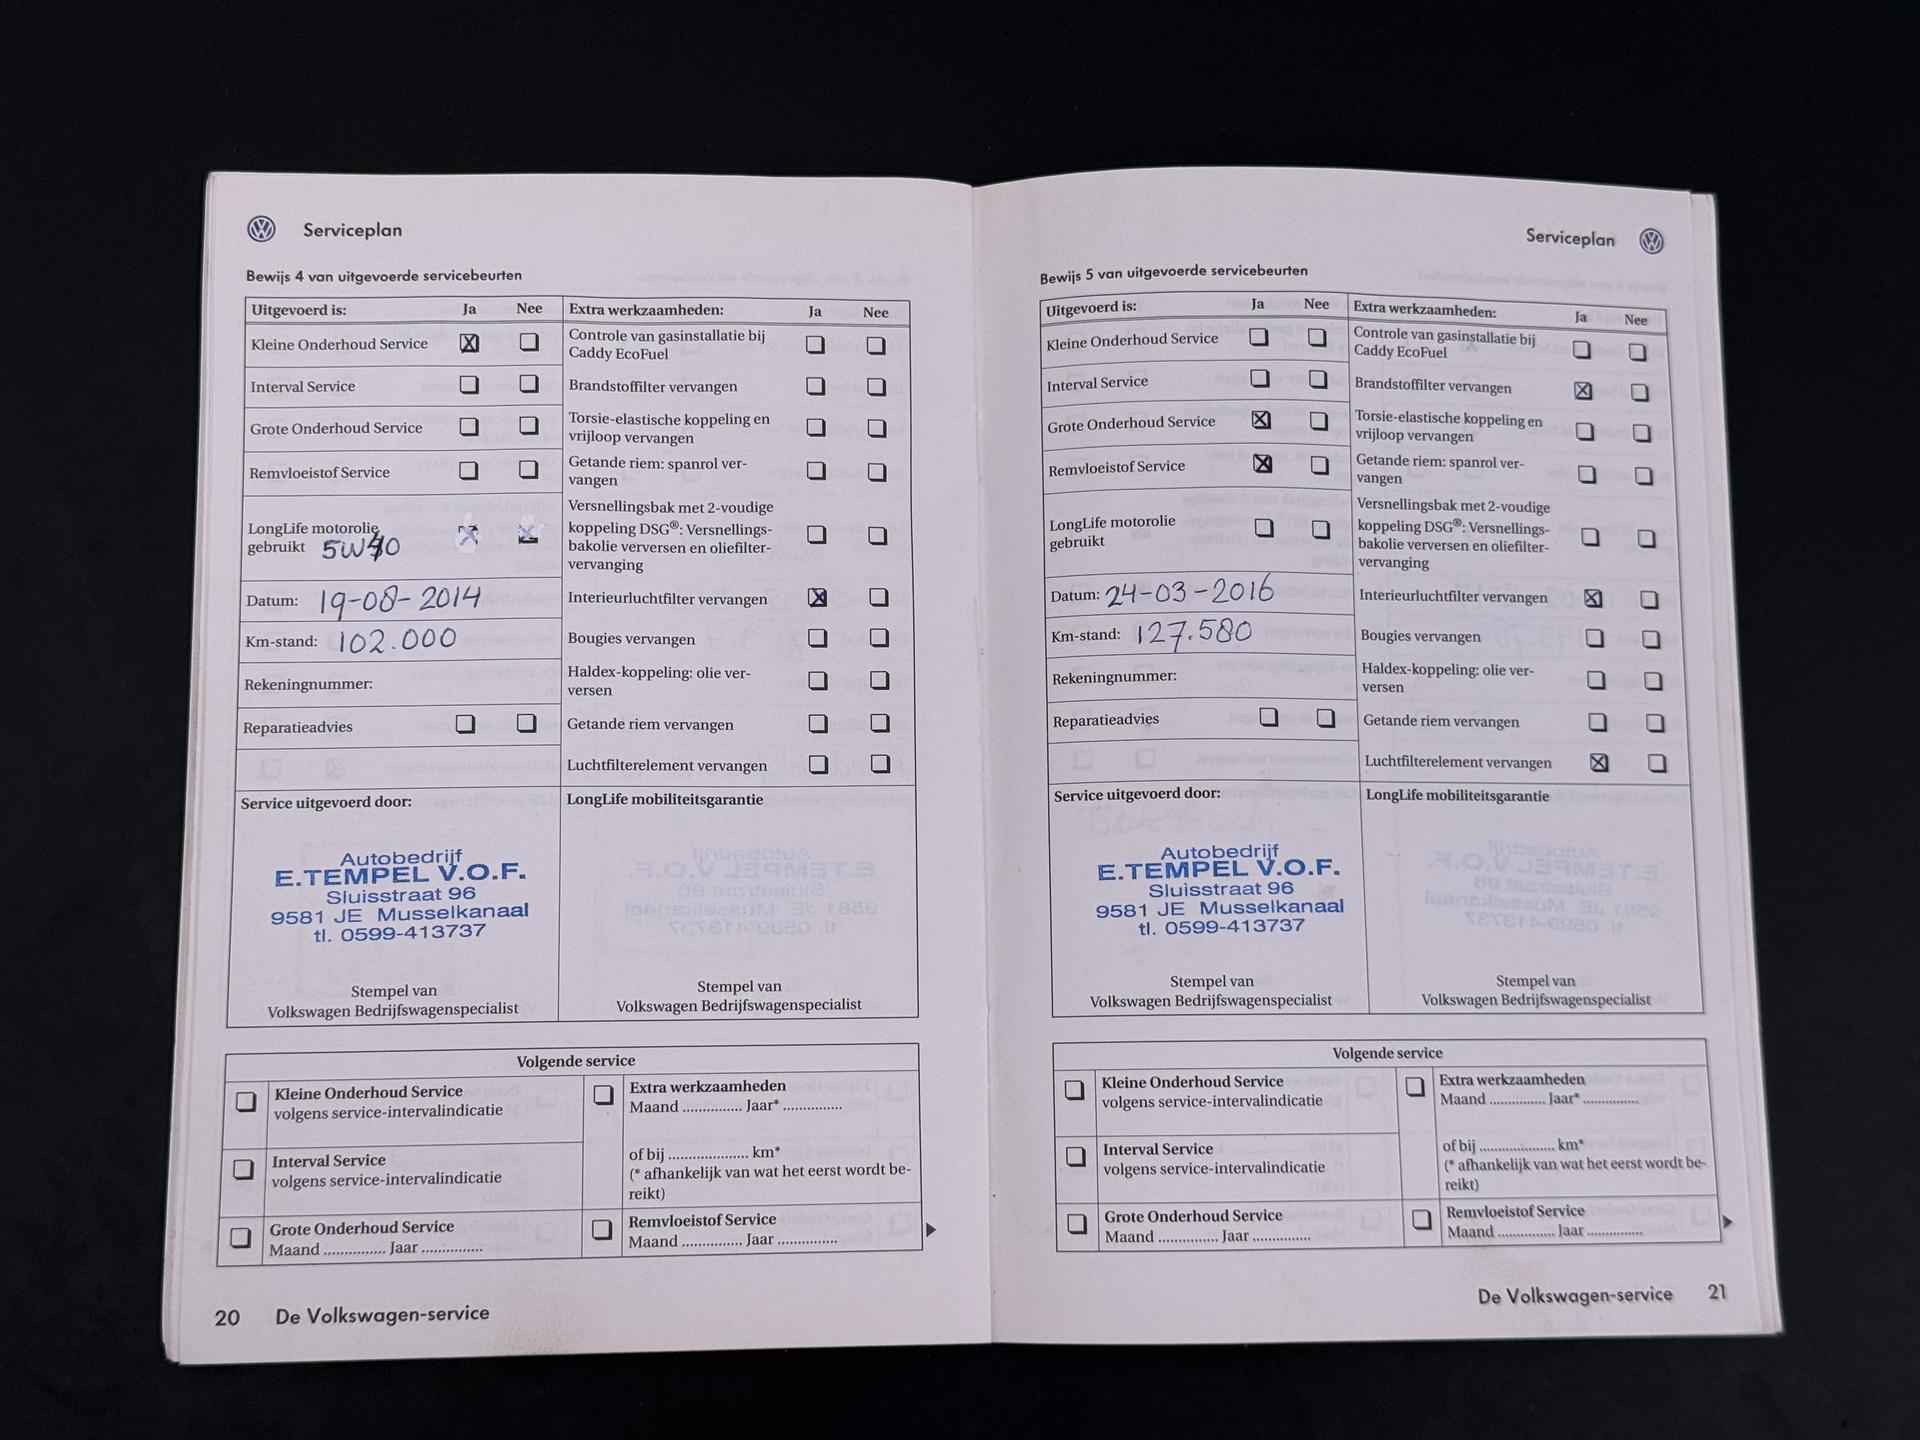 Serviceplan
Bewijs 4 van uitgevoerde servicebeurten
Uitgevoerd is: Ja Nee
Kleine Onderhoud Service
Interval Service
Grote Onderhoud Service
Remvloeistof Service
LongLife motorolie
gebruikt 5W40
Datum: 19-08-2014
Km-stand: 102.000
Rekeningnummer:
Reparatieadvies
Extra werkzaamheden: Ja Nee
Controle van gasinstallatie bij
Caddy EcoFuel
Brandstoffilter vervangen
Torsie-elastische koppeling en
vrijloop vervangen
Getande riem: spanrol ver-
vangen
Versnellingsbak met 2-voudige
koppeling DSG®: Versnellings-
bakolie verversen en oliefilter-
vervanging
Interieurluchtfilter vervangen
Bougies vervangen
Haldex-koppeling: olie ver-
versen
Getande riem vervangen
Luchtfilterelement vervangen
Service uitgevoerd door:
Autobedrijf
E.TEMPEL V.O.F.
Sluisstraat 96
9581 JE Musselkanaal
tl. 0599-413737
Stempel van
Volkswagen Bedrijfswagenspecialist
LongLife mobiliteitsgarantie
Stempel van
Volkswagen Bedrijfswagenspecialist
Volgende service
Kleine Onderhoud Service
volgens service-intervalindicatie
Interval Service
volgens service-intervalindicatie
Grote Onderhoud Service
Maand ............... Jaar ...............
Extra werkzaamheden
Maand ............... Jaar* ...............
of bij .................... km*
(* afhankelijk van wat het eerst wordt be-
reikt)
Remvloeistof Service
Maand ............... Jaar ...............
20 De Volkswagen-service
Serviceplan
Bewijs 5 van uitgevoerde servicebeurten
Uitgevoerd is: Ja Nee
Kleine Onderhoud Service
Interval Service
Grote Onderhoud Service
Remvloeistof Service
LongLife motorolie
gebruikt
Datum: 24-03-2016
Km-stand: 127.580
Rekeningnummer:
Reparatieadvies
Extra werkzaamheden: Ja Nee
Controle van gasinstallatie bij
Caddy EcoFuel
Brandstoffilter vervangen
Torsie-elastische koppeling en
vrijloop vervangen
Getande riem: spanrol ver-
vangen
Versnellingsbak met 2-voudige
koppeling DSG®: Versnellings-
bakolie verversen en oliefilter-
vervanging
Interieurluchtfilter vervangen
Bougies vervangen
Haldex-koppeling: olie ver-
versen
Getande riem vervangen
Luchtfilterelement vervangen
Service uitgevoerd door:
Autobedrijf
E.TEMPEL V.O.F.
Sluisstraat 96
9581 JE Musselkanaal
tl. 0599-413737
Stempel van
Volkswagen Bedrijfswagenspecialist
LongLife mobiliteitsgarantie
Stempel van
Volkswagen Bedrijfswagenspecialist
Volgende service
Kleine Onderhoud Service
volgens service-intervalindicatie
Interval Service
volgens service-intervalindicatie
Grote Onderhoud Service
Maand ............... Jaar ...............
Extra werkzaamheden
Maand ............... Jaar* ...............
of bij .................... km*
(* afhankelijk van wat het eerst wordt be-
reikt)
Remvloeistof Service
Maand ............... Jaar ...............
De Volkswagen-service 21